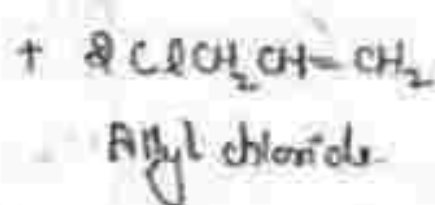 + 2 ClCH₂CH=CH₂
Allyl chloride